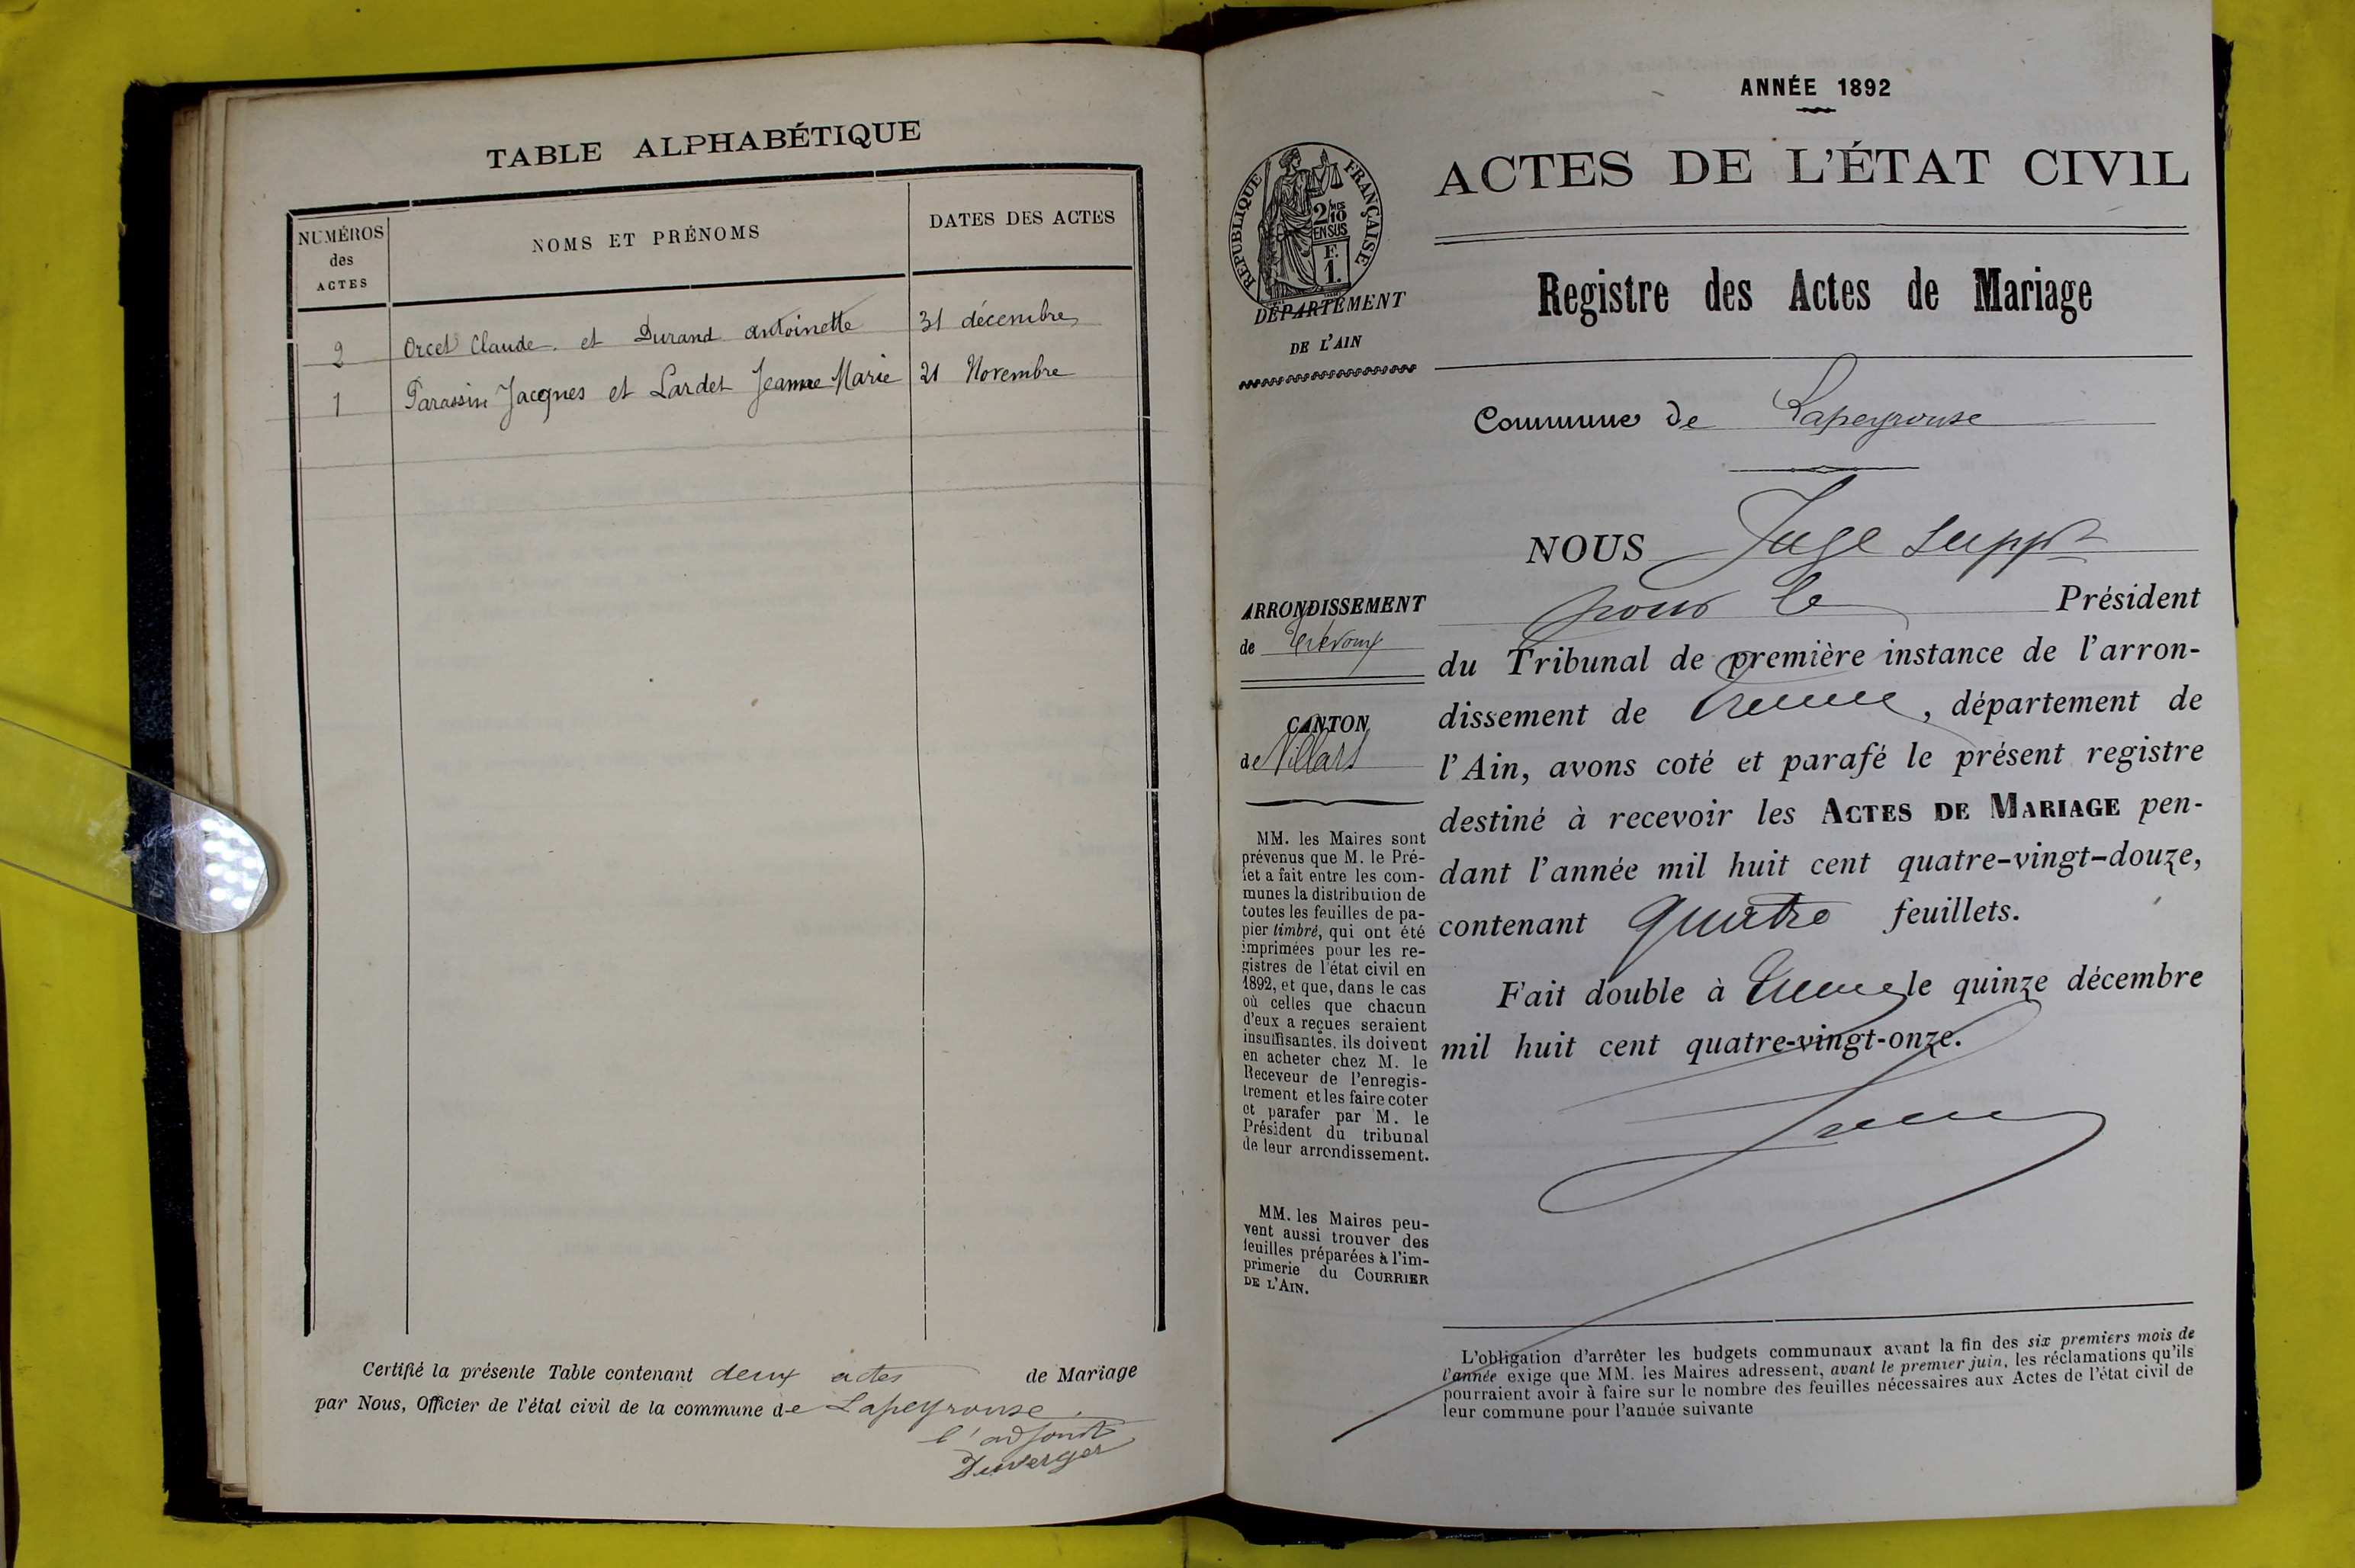 TABLE ALPHABÉTIQUE
NUMÉROS
des
ACTES
NOMS ET PRÉNOMS
DATES DES ACTES
2 Orcet Claude et Durand antoinette 31 décembre
1 Parassin Jacques et Lardet Jeanne Marie 21 Novembre
Certifié la présente Table contenant deux actes de Mariage
par Nous, Officier de l'état civil de la commune de Lapeyrouse.
l'adjoint
Duverger
ANNÉE 1892
ACTES DE L'ÉTAT CIVIL
RÉPUBLIQUE FRANÇAISE
2/10 MES
EN SUS
F.
1.
DÉPARTEMENT
DE L'AIN
Registre des Actes de Mariage
Commune de Lapeyrouse
ARRONDISSEMENT
de Trévoux
CANTON
de Villars
MM. les Maires sont
prévenus que M. le Pré-
fet a fait entre les com-
munes la distribution de
toutes les feuilles de pa-
pier timbré, qui ont été
imprimées pour les re-
gistres de l'état civil en
1892, et que, dans le cas
où celles que chacun
d'eux a reçues seraient
insuffisantes, ils doivent
en acheter chez M. le
Receveur de l'enregis-
trement et les faire coter
et parafer par M. le
Président du tribunal
de leur arrondissement.
MM. les Maires peu-
vent aussi trouver des
feuilles préparées à l'im-
primerie du COURRIER
DE L'AIN.
NOUS Juge suppt
pour le Président
du Tribunal de première instance de l'arron-
dissement de Trévoux, département de
l'Ain, avons coté et parafé le présent registre
destiné à recevoir les ACTES DE MARIAGE pen-
dant l'année mil huit cent quatre-vingt-douze,
contenant quatre feuillets.
Fait double à Trévoux le quinze décembre
mil huit cent quatre-vingt-onze.
L'obligation d'arrêter les budgets communaux avant la fin des six premiers mois de
l'année exige que MM. les Maires adressent, avant le premier juin, les réclamations qu'ils
pourraient avoir à faire sur le nombre des feuilles nécessaires aux Actes de l'état civil de
leur commune pour l'année suivante